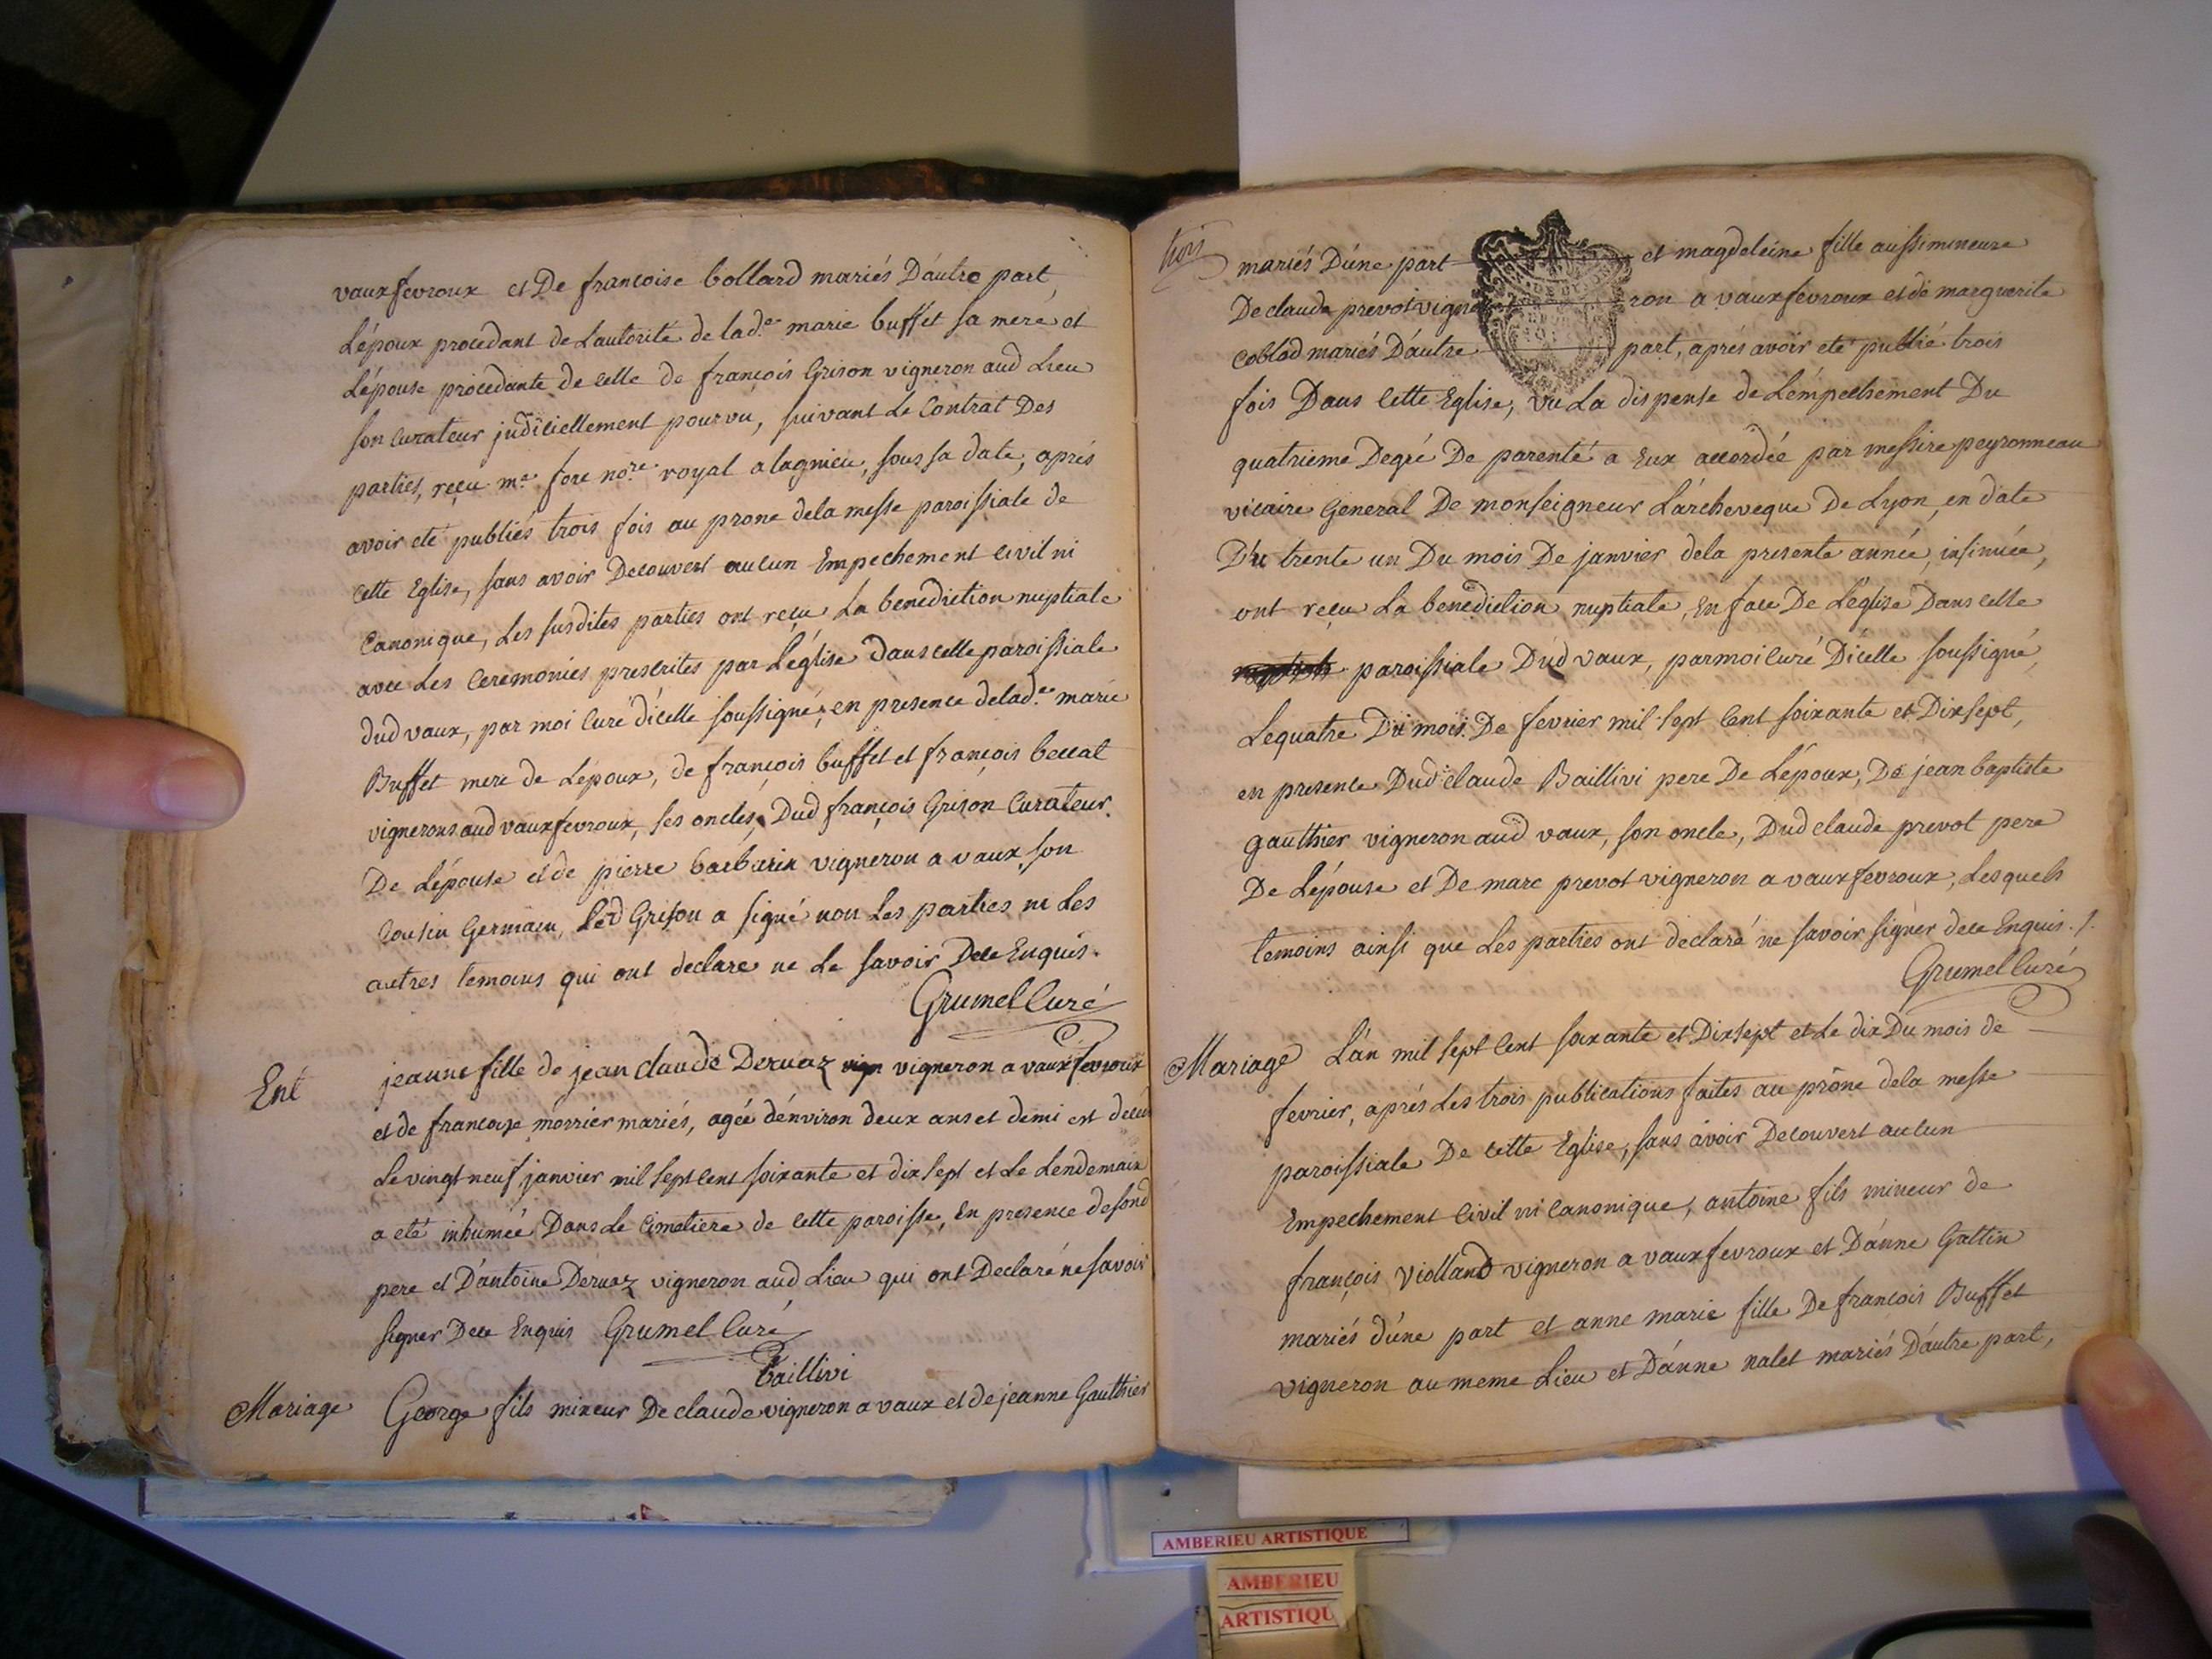 vauxfevroux et De francoise bollard mariés Dáutre part,
Lépoux procedant de Lautorité de lad.e marie buffet sa mere et
Lépouse procedante de celle de françois Grison vigneron aud Lieu
son curateur judiciellement pourvu, suivant Le Contrat Des
parties, reçu m.e fore no.re royal a lagnieu, sous sa date, aprés
avoir eté publiés trois fois au prone dela messe paroissiale de
cette Eglise, sans avoir Decouvert aucun Empechement civil ni
Canonique, Les susdites parties ont reçu La benediction nuptiale
avec Les Ceremonies prescrites par Léglise dans celle paroissiale
dud vaux, par moi Curé dícelle soussigné, en presence delad.e marie
Buffet mere de Lépoux, de françois buffet et françois beccat
vignerons aud vauxfevroux, ses oncles, Dud françois Grison Curateur
De Lépouse et de pierre barbarin vigneron a vaux son
Cousin Germain, led Grison a signé non Les parties ni Les
autres temoins qui ont declare ne Le savoir Dece Enquis.
Grumel Curé
Ent jeanne fille de jean claude Dervaz vigneron a vauxfevroux
et de francoise morrier mariés, agée dénviron deux ans et demi est decéd
Le vingt neuf janvier mil sept cent soixante et dix sept et Le Lendemain
a eté inhumée Dans Le Cimetiere de cette paroisse, En presence de sond
pere et D'antoine Dervaz vigneron aud Lieu qui ont Declaré ne savoir
signer Dece Enquis Grumel Curé
Baillivi
Mariage George fils mineur De claude vigneron a vaux et de jeanne Gauthier
trois
mariés D'úne part et magdeleine fille aussi mineure
De claude prevot vigneron a vauxfevroux et de marguerite
Coblod mariés Dáutre part, aprés avoir eté publié trois
fois Dans Cette Eglise, vu La dispense de Lémpechement Du
quatrieme Degré De parenté a Eux accordée par messire peyronneau
vicaire General De monseigneur Lárcheveque De Lyon, en date
Du trente un Du mois De janvier dela presente année, insinuée,
ont reçu La benediction nuptiale, En face De Léglise Dans celle
paroissiale Dud vaux, par moi Curé Dícelle soussigné,
Le quatre Du mois De fevrier mil sept Cent soixante et Dix sept,
en presence Dud claude Baillivi pere De Lépoux, De jean baptiste
gauthier vigneron aud vaux, son oncle, Dud claude prevot pere
De Lépouse et De marc prevot vigneron a vauxfevroux, Lesquels
temoins ainsi que Les parties ont declaré ne savoir signer dece Enquis ./.
Grumel Curé
Mariage Lán mil sept Cent soixante et Dix sept et Le dix Du mois de
fevrier, aprés Les trois publications faites au prône dela messe
paroissiale De cette Eglise, sans avoir Decouvert aucun
Empechement Civil ni Canonique, antoine fils mineur de
françois Violland vigneron a vauxfevroux et Dánne Gattin
mariés dúne part et anne marie fille De francois Buffet
vigneron au meme Lieu et Dánne nalet mariés Dáutre part,
AMBERIEU ARTISTIQUE
AMBERIEU
ARTISTIQU